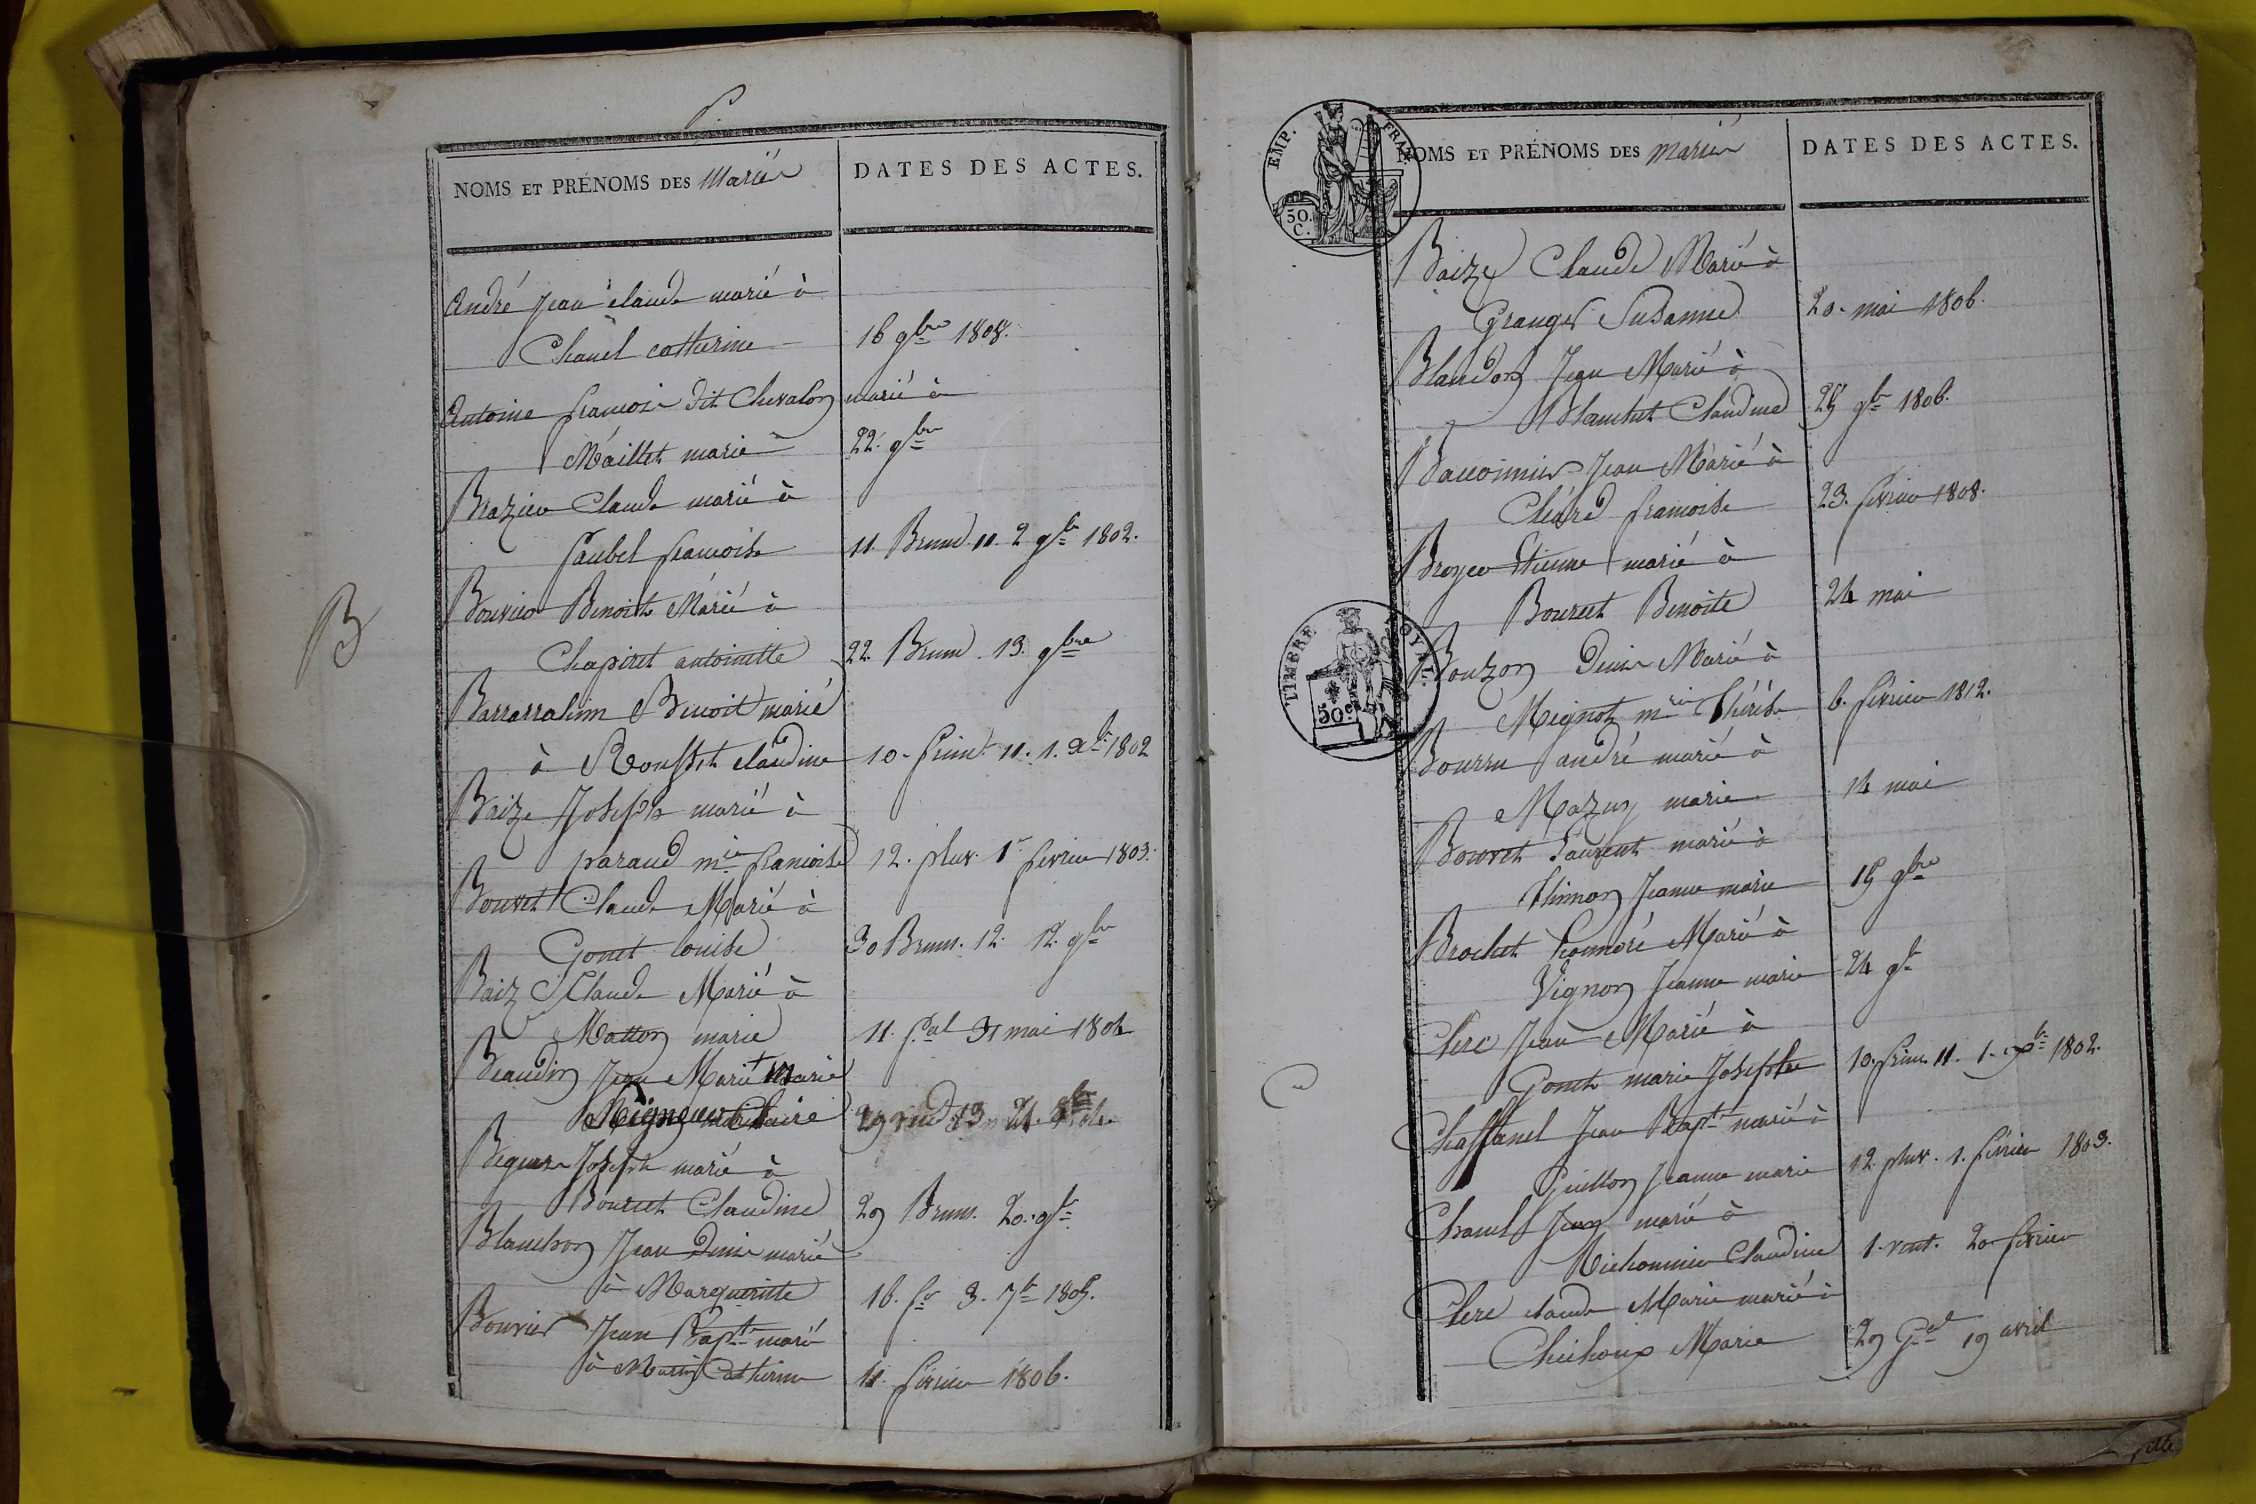 NOMS ET PRÉNOMS DES Mariés
DATES DES ACTES.
André Jean claude marié à
Chanel catherine 16 9bre 1808.
Antoine françois dit Chevalon marié à
Maillet marie 22. 9bre
B
Brazier Claude marié à
Jaubel françoise 11. Brumre 11. 2 9bre 1802.
Bouvier Benoit Marié à
Chapiret antoinette 22. Brum. 13. 9bre
Benoit marié
à Rousset claudine 10. frimre 11. 1. Xbre 1802
Baize Joseph marié à
paraud mie francoise 12. pluv. 1er fevrier 1803.
Bouvet Claude Marié à
Gonet louise 30 Brum. 12. 12. 9bre
Baiz Claude Marié à
Matton marie 11. P.al 31 mai 1804
Beaudin Jean Marie Marié
Claire 29
Joseph marié à
Bourcet Claudine 29 Brum. 20. 9bre
Blanchon Jean Denis marié
à Margueritte 16. fr 3. 7bre 1805.
Bouvier Jean Bapte marié
à Marin Catherine 11. février 1806.
EMP. FRAN.
50. C.
NOMS ET PRÉNOMS DES mariés
DATES DES ACTES.
Baize Claude Marié à
Granger Susanne 20. mai 1806.
Blandon Jean Marié à
Blanchet Claudine 25 9bre 1806.
Jean Marié à
Cléard francoise 23. fevrier 1808.
Broyer Etienne marié à
Bourcet Benoite 24 mai
TIMBRE ROYAL
50c
Bouzon Denis Marié à
Mignot mrie Thérèse 6. février 1812.
Bourru andré marié à
Mazuy marie 14 mai
Bouvret Laurent marié à
Thinon Jeanne marie 15 9bre
Brochet honnoré Marié à
Vignon Jeanne marie 24 9bre
C
Clerc Jean Marié à
Gonet marie Josephe 10. frim. 11. 1. Xbre 1802.
Chaffanel Jean Bapte marié à
Guillon Jeanne marie 12. pluv. 1. février 1803.
Chanel Jean marié à
Michonnier Claudine 1. vent. 20 fevrier
Clerc claude Marie marié à
Chichoux Marie 29 G.al 19 avril